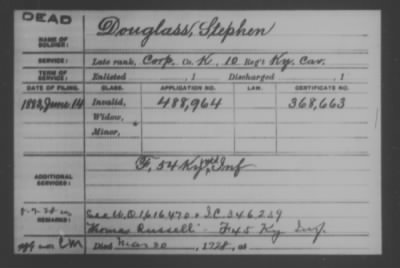 DEAD
NAME OF SOLDIER: Douglass, Stephen
SERVICE: Late rank, Corp. Co. K, 10 Reg't Ky. Cav.
TERM OF SERVICE: Enlisted , 1 Discharged , 1
DATE OF FILING. CLASS. APPLICATION NO. LAW. CERTIFICATE NO.
1883, June 14 Invalid, 488,964 368,663
Widow,
Minor,
ADDITIONAL SERVICES: F, 54 Ky Inf
REMARKS: See W.O. 1616470 I.C. 346239
Thomas Russell - F 45 Ky Inf.
Died Mar 20 , 1928, at